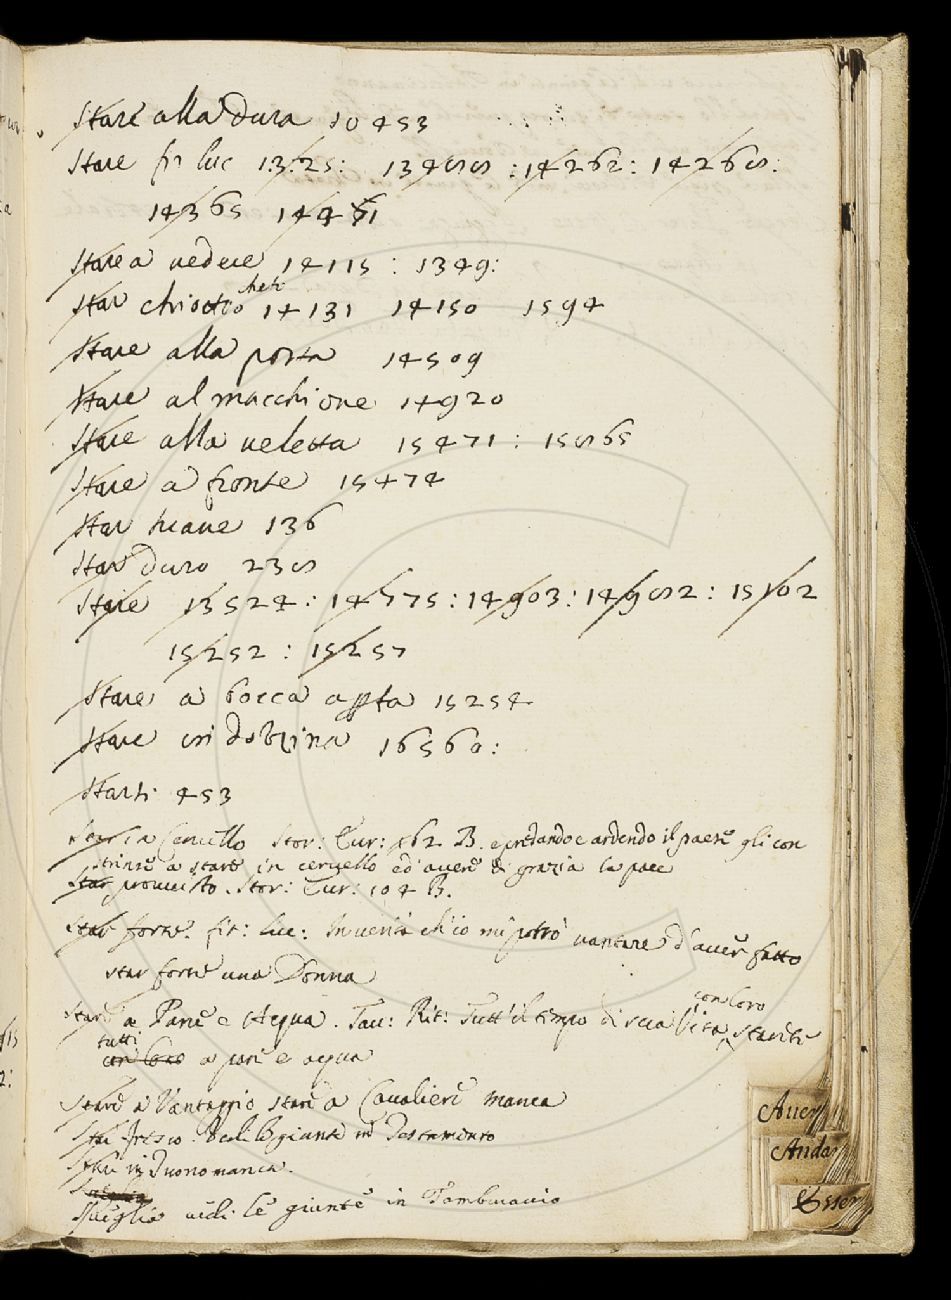 Stare alla dura 10453
Stare fr luc 13.25: 134 : 14262: 1426 :
14365 14451
Stare a vedere 14115 : 1349:
Star chiotto cheto 14131 14150 1594
Stare alla posta 14509
Stare al macchione 14920
Stare alla veletta 15471 : 15 65
Stare a fronte 15474
Star 136
Star duro 23
Stare 13524: 14775: 14903: 149 2: 15102
15252 : 15257
Stare a bocca appta 15254
Stare in dozzina 16560:
Starsi 453
Star in Cervello Stor: Eur: 162 B. e predando e ardendo il paese gli con
strinse a stare in cervello ed avere di grazia la pace
Star provvisto. Stor: Eur: 104 B.
Star forte. fir: luc: In verità ch'io mi potrò vantare d'aver fatto
star forte una Donna
Stare a Pane e Acqua. Tau: Rit: Tutt'il tempo di sua vita con loro starete
tutti con loro a pane e acqua
Stare a Vantaggio stare a Cavaliere manca
Star fresco. Vedi le giunte in Testamento
Star in Tuono manca.
Sveglia vedi le giunte in
Aver
Anda
Esser